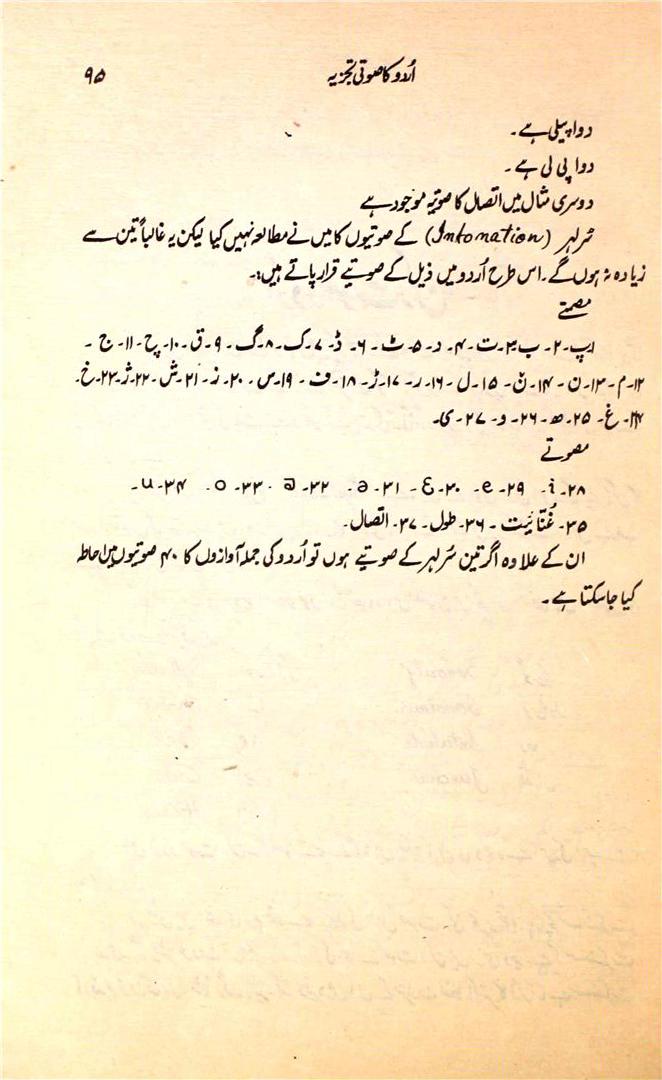 اُردو کا صوتی تجزیہ ۹۵
دوا پیلی ہے۔
دوا پی لی ہے۔
دوسری مثال میں اتصال کا صوتیہ موجود ہے
سُر لہر (Intonation) کے صوتیوں کا میں نے مطالعہ نہیں کیا لیکن یہ غالباً تین سے
زیادہ نہ ہوں گے۔ اس طرح اُردو میں ذیل کے صوتیے قرار پاتے ہیں:۔
مصمتے
۱۔پ۔۲۔ ب۔۳۔ت۔۴۔ د۔۵۔ٹ۔۶۔ ڈ۔۷۔ک۔۸۔گ۔۹۔ق۔۱۰۔چ۔۱۱۔ج۔
۱۲۔م۔۱۳۔ن۔۱۴۔نٚ۔۱۵۔ل۔۱۶۔ر۔۱۷۔ڑ۔۱۸۔ف۔۱۹۔س۔۲۰۔ز۔۲۱۔ش۔۲۲۔ژ۔۲۳۔خ۔
۲۴۔غ۔۲۵۔ھ۔۲۶۔و۔۲۷۔ی۔
مصوتے
۲۸۔i۔ ۲۹۔e۔ ۳۰۔Ɛ۔ ۳۱۔ə۔ ۳۲۔a۔ ۳۳۔o۔ ۳۴۔u۔
۳۵۔ غُنّائیت۔۳۶۔ طول۔۳۷۔ اتصال۔
ان کے علاوہ اگر تین سُر لہر کے صوتیے ہوں تو اُردو کی جملہ آوازوں کا ۴۰ صوتیوں میں احاطہ
کیا جا سکتا ہے۔